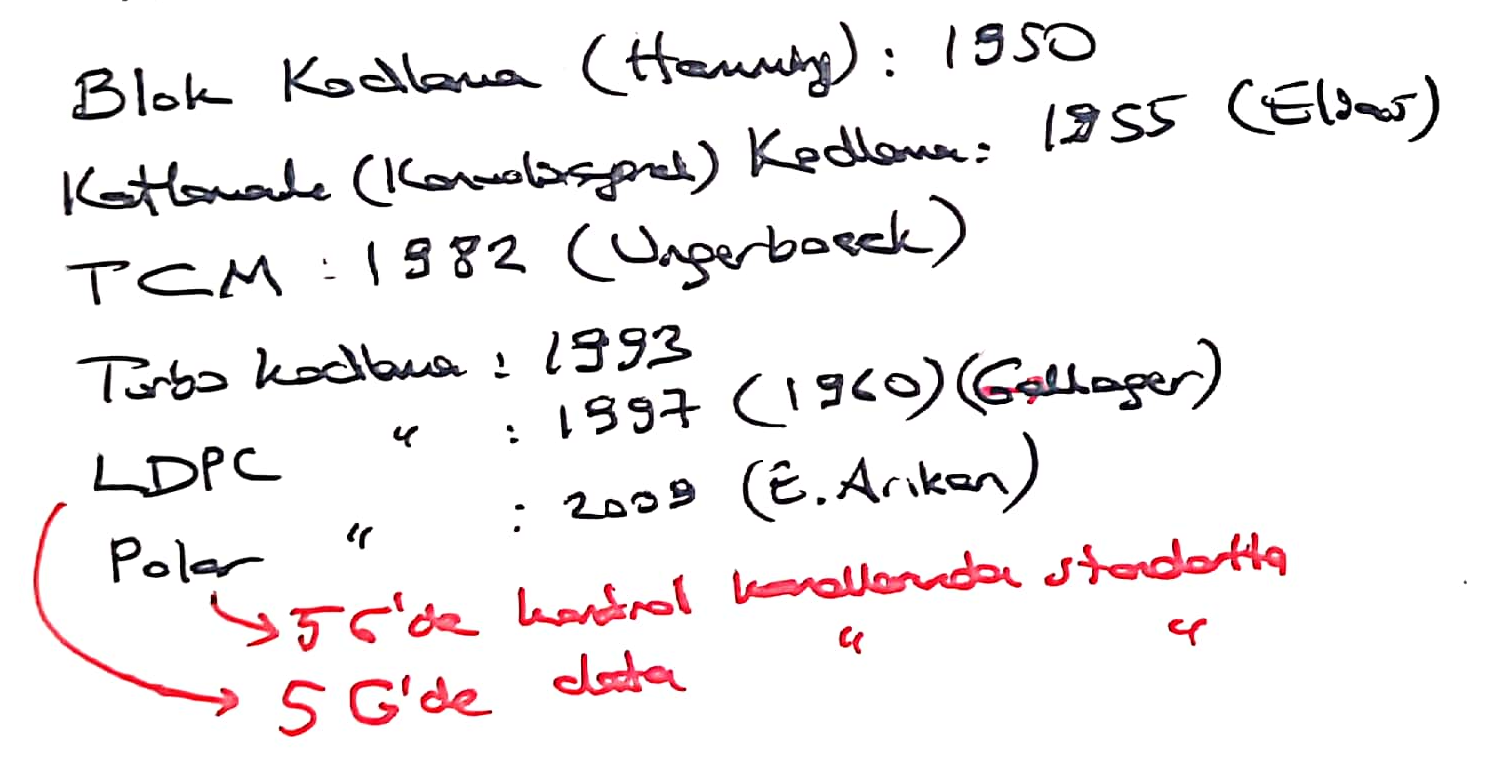 Blok Kodlama (Hamming): 1950
Katlamalı (Konvolüsyonel) Kodlama: 1955 (Elias)
TCM : 1982 (Ungerboeck)
Turbo kodlama : 1993
LDPC " : 1997 (1960) (Gallager)
Polar " : 2009 (E. Arıkan)
→ 5G'de kontrol kanallarında standartta
→ 5G'de data " "